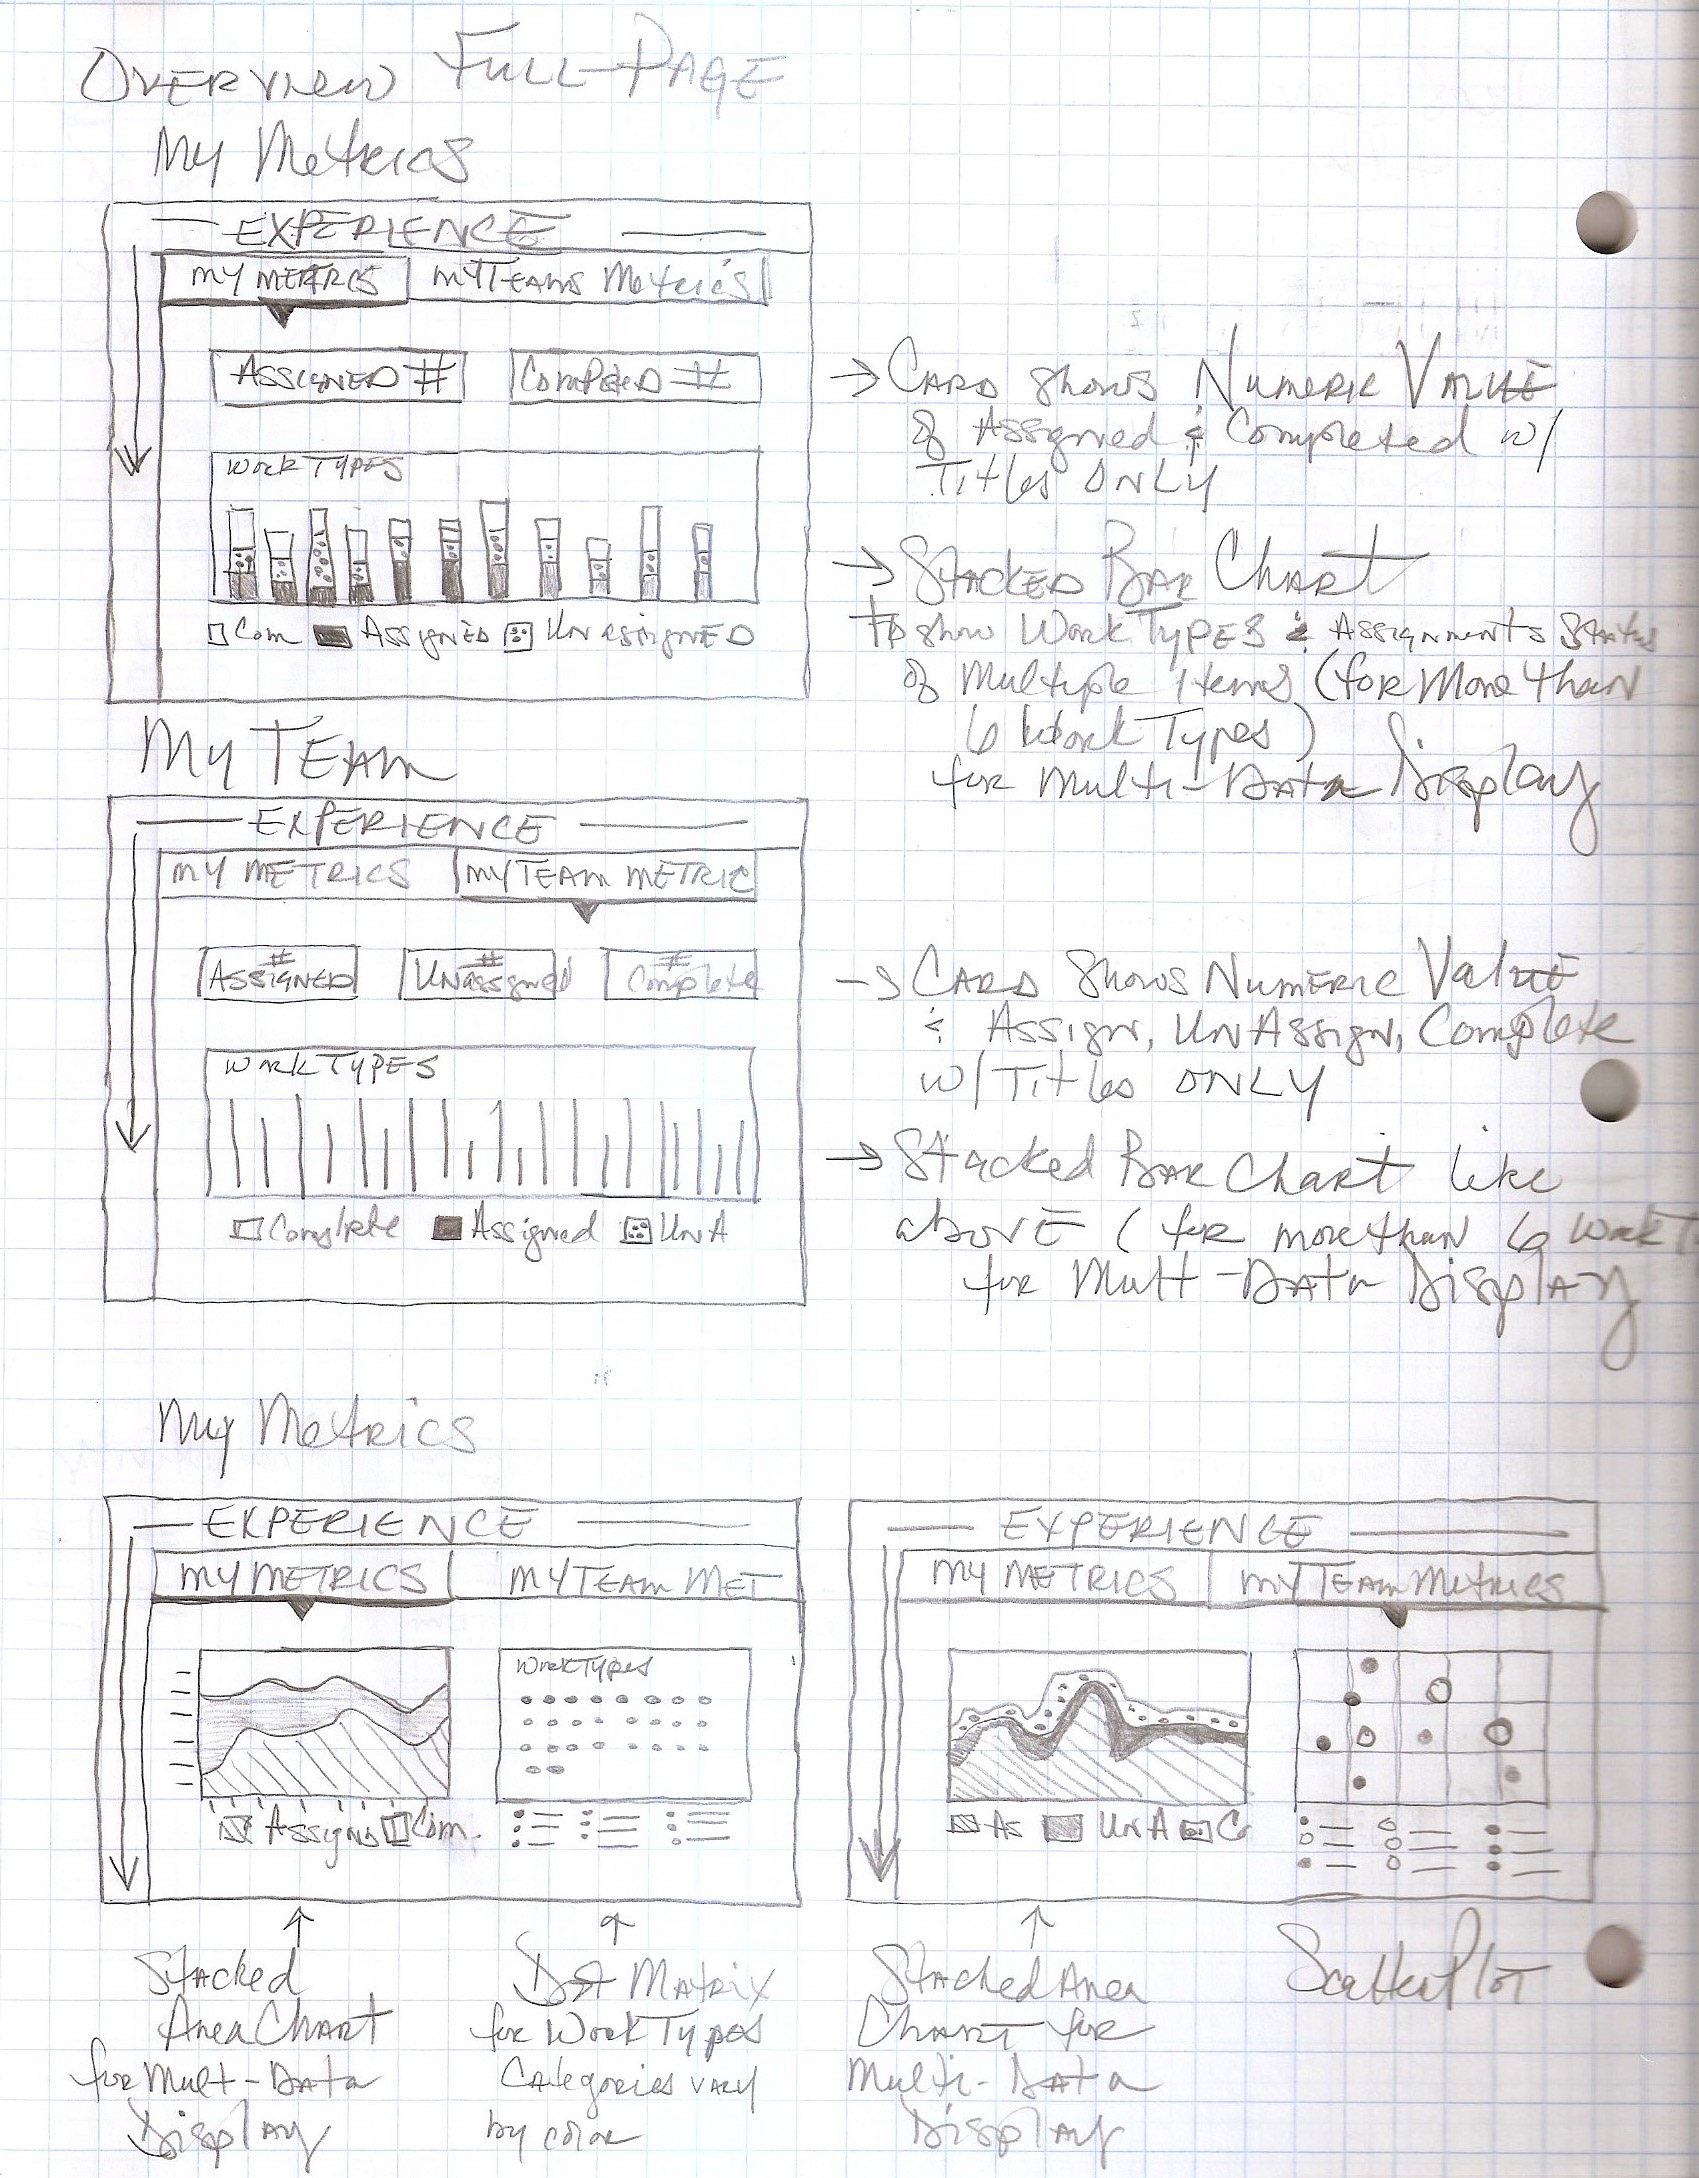 OVERVIEW FULL-PAGE
My Metrics
EXPERIENCE
MY METRICS MY TEAMS Metrics
ASSIGNED # Completed #
WORK TYPES
Com ASSIGNED UNASSIGNED
→ CARD Shows NUMERIC VALUE
of Assigned & Completed w/
Titles ONLY
→ STACKED BAR CHART
to show WORK TYPES & ASSIGNMENTS Status
of Multiple Items (for More than
6 Work Types)
for Multi-DATA Display
My TEAM
EXPERIENCE
MY METRICS MY TEAM METRIC
# ASSIGNED # UNASSIGNED # Complete
→ CARD Shows NUMERIC Value
& Assign, UNAssign, Complete
w/ Titles ONLY
WORK TYPES
→ Stacked BAR Chart like
above (for more than 6 Work T
for Mult-DATA Display
Complete Assigned UNA
My Metrics
EXPERIENCE
MY METRICS MY TEAM MET
Work Types
Assigns Com.
EXPERIENCE
MY METRICS MY TEAM Metrics
As UNA Co
↑
Stacked
Area CHART
for Mult-Data
Display
↑
Dot MATRIX
for Work Types
Categories vary
by color
↑
Stacked Area
CHART for
Multi-Data
Display
Scatter Plot